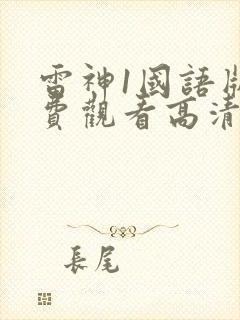 雷神1國語
費觀看高清
長尾